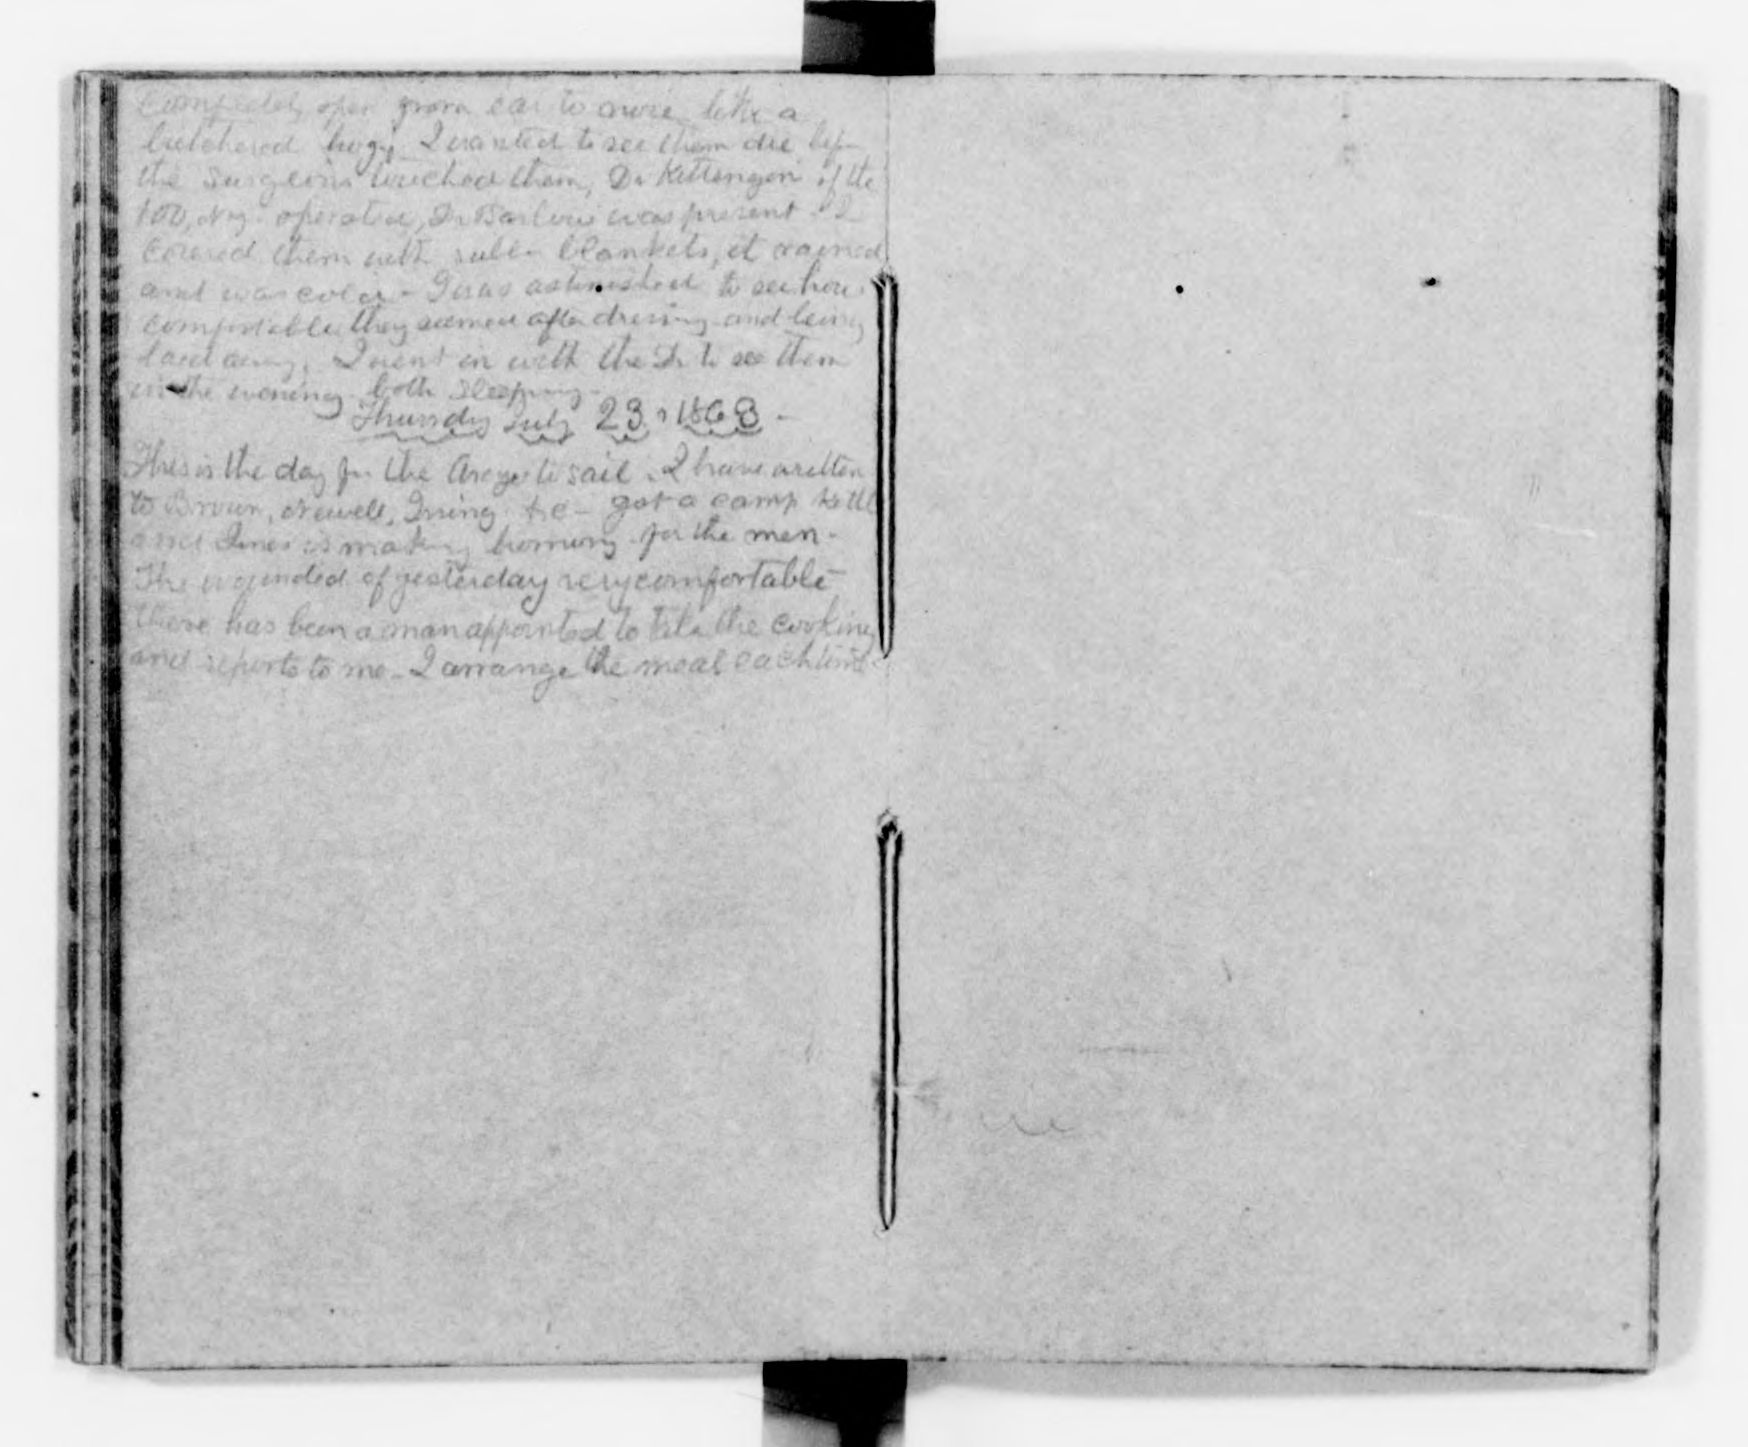 Completely open from ear to nose like a
butchered hog, I wanted to see them die bef-
the surgeons touched them, Dr Kittengen of the
100, N.Y. operated, Dr Barlow was present - I
Covered them with rubber blankets, it rained
and was cold - I was astonished to see how
comfortable they seemed after dressing and being
laid away. I went in with the Dr to see them
in the evening both sleeping -
Thursday July 23, 1863 -
This is the day for the Arago to sail. I have written
to Brown, Newell, Irving &c - got a camp kettle
and is making hominy for the men -
The wounded of yesterday very comfortable -
there has been a man appointed to take the cooking
and reports to me - I arrange the meal each time